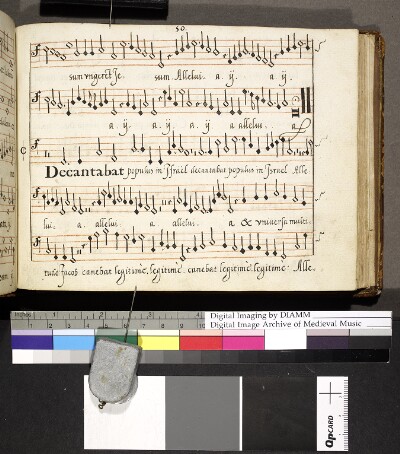 50
sum ungerẽt Je. sum Allelui. a. ij. a ij.
a ij. a ij. a ij a allelui. a
Decantabat populus in Jsrael decantabat populus in Jsrael Alle
lui. a. allelui. a allelui. a & vniversa multi-
tudo Jacob canebat legitime, legitime. canebat legitime legitime. Alle.
inches
Digital Imaging by DIAMM
Digital Image Archive of Medieval Music
QPCARD